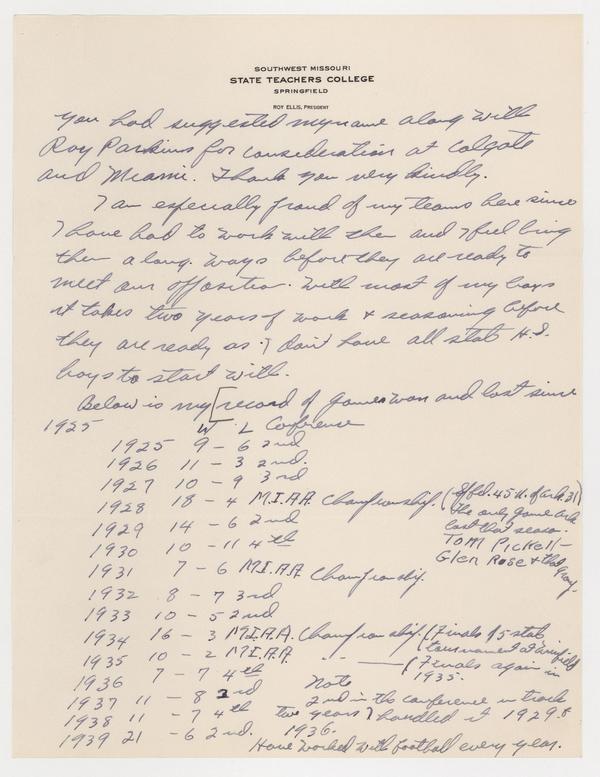 SOUTHWEST MISSOURI
STATE TEACHERS COLLEGE
SPRINGFIELD
ROY ELLIS, PRESIDENT
you had suggested my name along with
Roy Parkins for consideration at Colgate
and Miami. Thank you very kindly.
I am especially proud of my teams here since
I have had to work with them and bring
them along ways before they are ready to
meet our opposition. With most of my boys
it takes two years of work & seasoning before
they are ready as I don't have all state H.S.
boys to start with.
Below is my [record of games won and lost since
1925 W L Conference
1925 9 - 6 2nd
1926 11 - 3 2nd.
1927 10 - 9 3rd
1928 18 - 4 M.I.A.A. Championship. (Spfd. 45 U. of Ark. 31)
the only game Ark
lost that season.
1929 14 - 6 2nd
Tom Pickell -
1930 10 - 11 4th
Glen Rose & that group.
1931 7 - 6 M.I.A.A. Championship.
1932 8 - 7 3rd
1933 10 - 5 2nd
1934 16 - 3 M.I.A.A. Championship. (Finals of 5 state
tournament at Winfield
1935 10 - 2 M.I.A.A. " " — (Finals again in
1935.
1936 7 - 7 4th
Note
1937 11 - 8 3rd
2nd in the conference in track
1938 11 - 7 4th
two years I handled it 1929 &
1936.
1939 21 - 6 2nd.
Have worked with football every year.